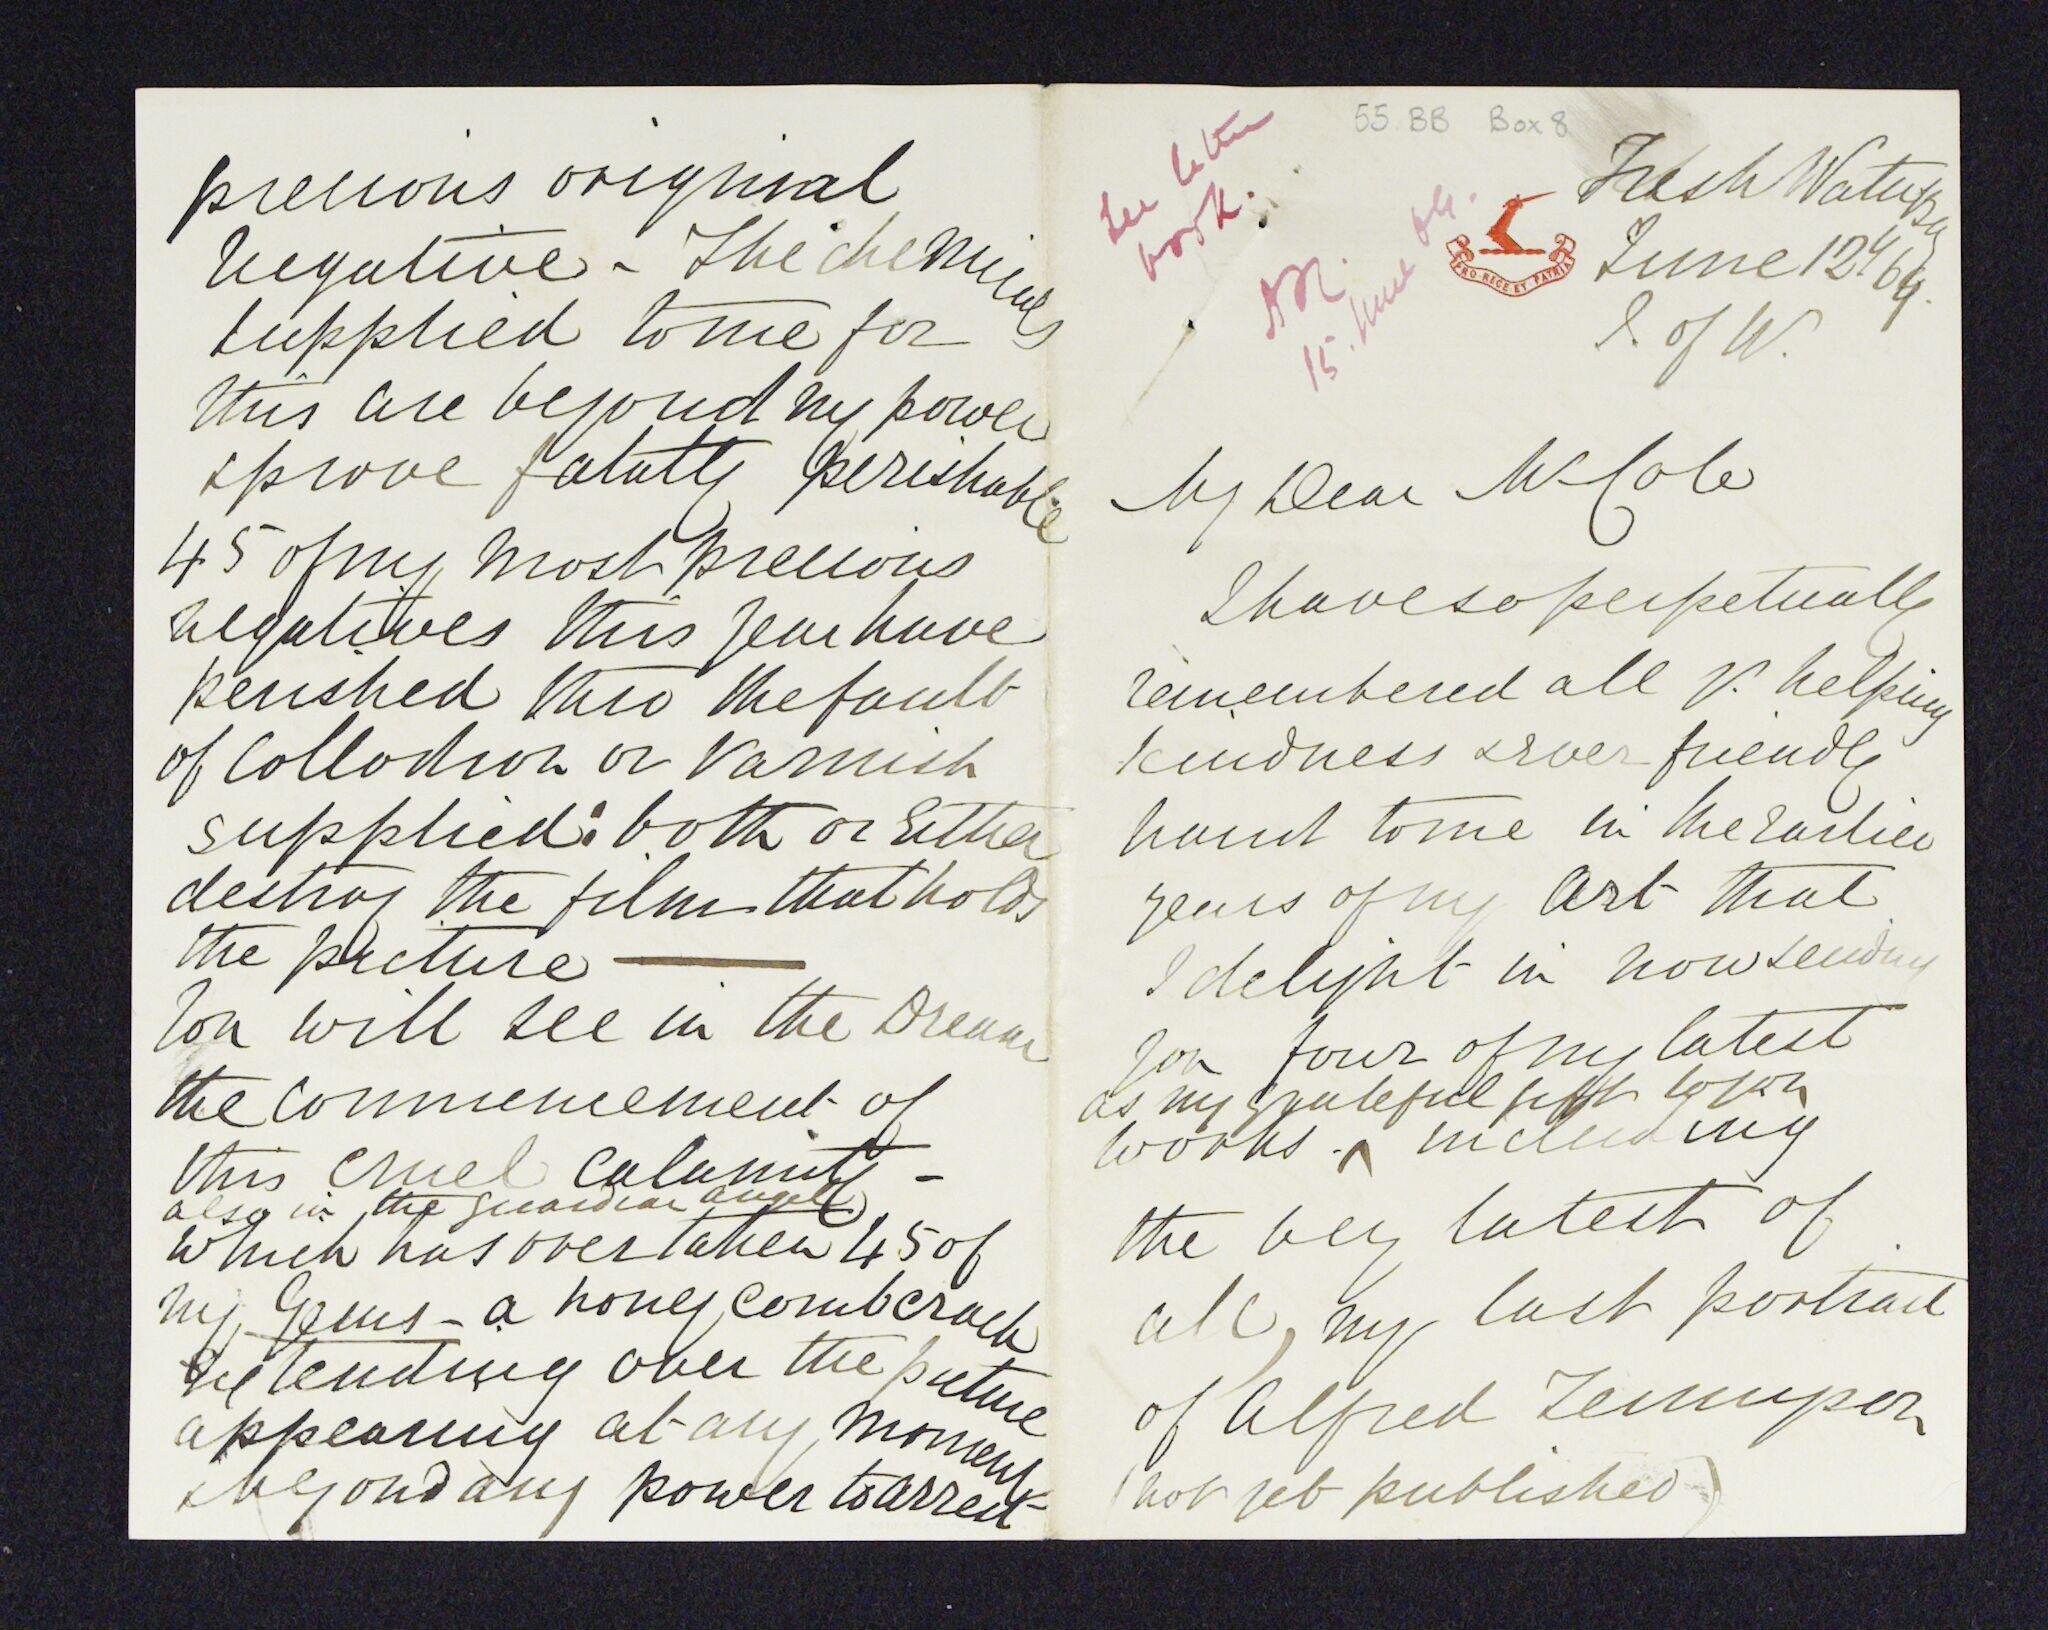 55. BB Box 8
See letter
book.
15. June 69.
PRO·REGE ET PATRIA
Fresh Water Bay
June 12th 69.
I. of W.
My Dear Mr Cole
I have so perpetually
remembered all yr. helping
kindness & ever friendly
hand to me in the earlier
years of my Art that
I delight in now sending
you four of my latest
as my grateful gift to you
works - ^ including
the very latest of
all, my last portrait
of Alfred Tennyson
(not yet published)
precious original
negative - The chemicals
supplied to me for
this are beyond my power
& prove fatally perishable
45 of my most precious
negatives this year have
perished thro the fault
of Collodion or Varnish
supplied: both or Either
destroy the film that holds
the picture —
You will see in the Dream
the commencement of
this cruel calamity -
also in the guardian angel
which has over taken 45 of
my Gems - a honey comb crack
extending over the picture
appearing at any moment
& beyond any power to arrest